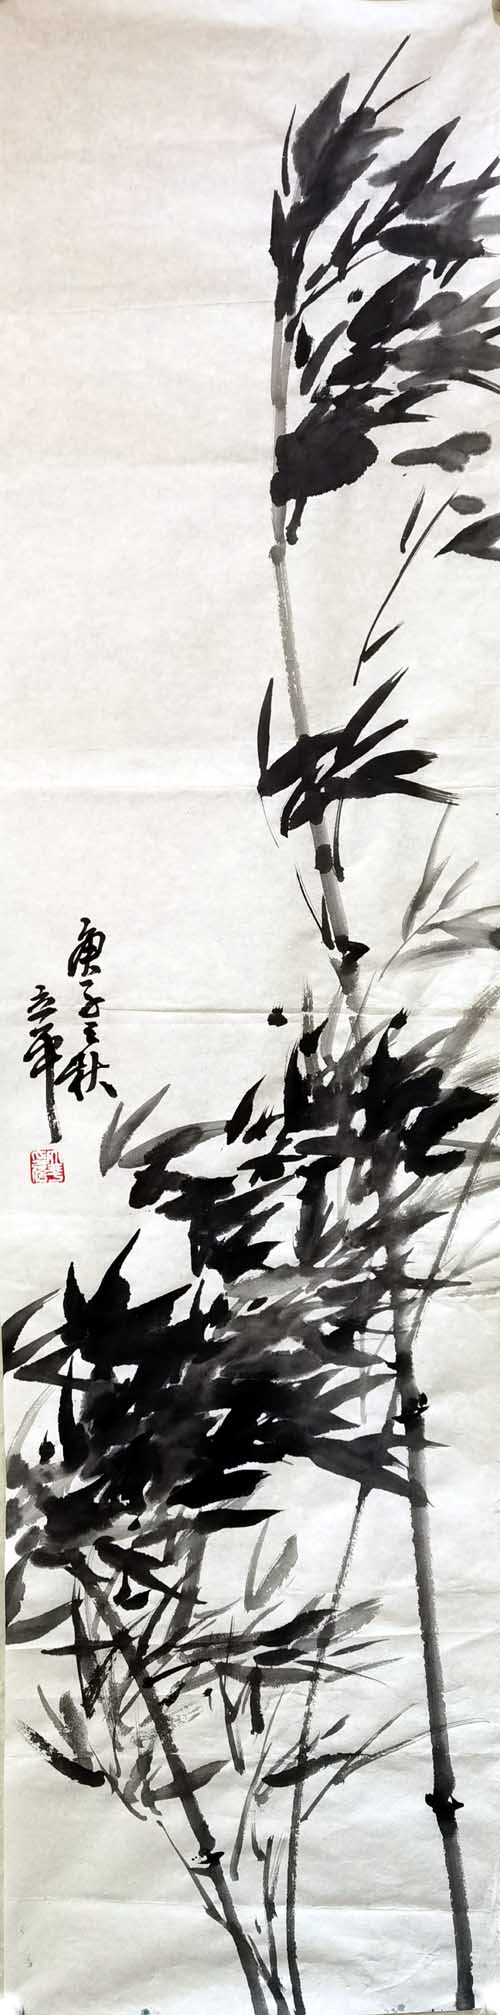 庚子之秋
立平